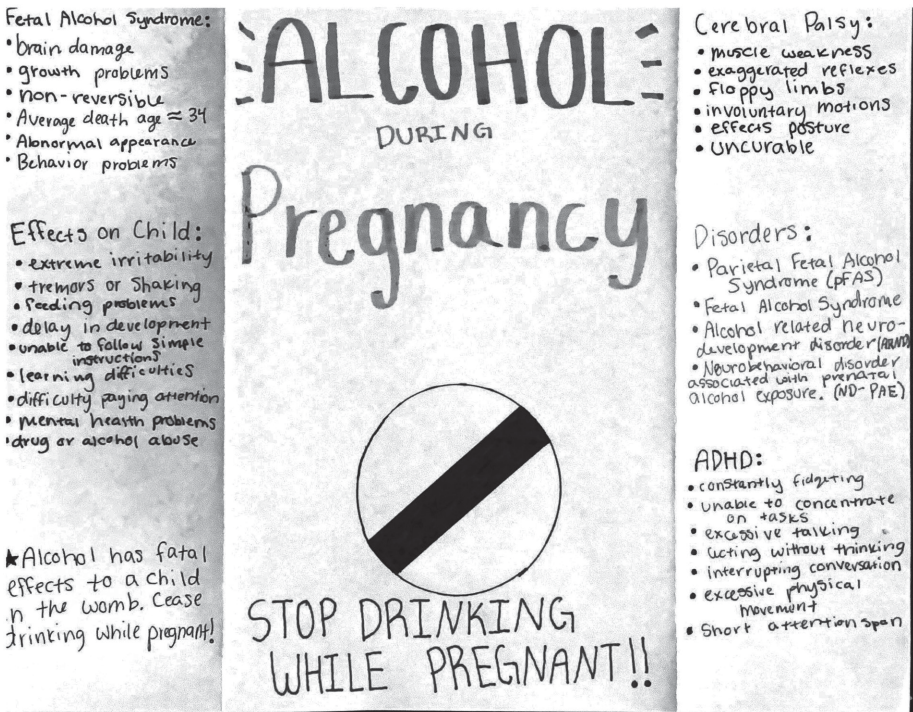 Fetal Alcohol Syndrome:
• brain damage
• growth problems
• non-reversible
• Average death age ≈ 34
• Abnormal appearance
• Behavior problems
Effects on Child:
• extreme irritability
• tremors or Shaking
• feeding problems
• delay in development
• unable to follow simple
instructions
• learning difficulties
• difficulty paying attention
• mental health problems
• drug or alcohol abuse
★Alcohol has fatal
effects to a child
n the womb. Cease
drinking while pregnant!
ALCOHOL
DURING
Pregnancy
STOP DRINKING
WHILE PREGNANT!!
Cerebral Palsy:
• muscle weakness
• exaggerated reflexes
• floppy limbs
• involuntary motions
• effects posture
• uncurable
Disorders:
• Parietal Fetal Alcohol
Syndrome (pFAS)
• Fetal Alcohol Syndrome
• Alcohol related neuro-
development disorder (ARND)
• Neurobehavioral disorder
associated with prenatal
alcohol exposure. (ND-PAE)
ADHD:
• constantly fidgeting
• unable to concentrate
on tasks
• excessive talking
• acting without thinking
• interrupting conversation
• excessive physical
movement
• Short attention span